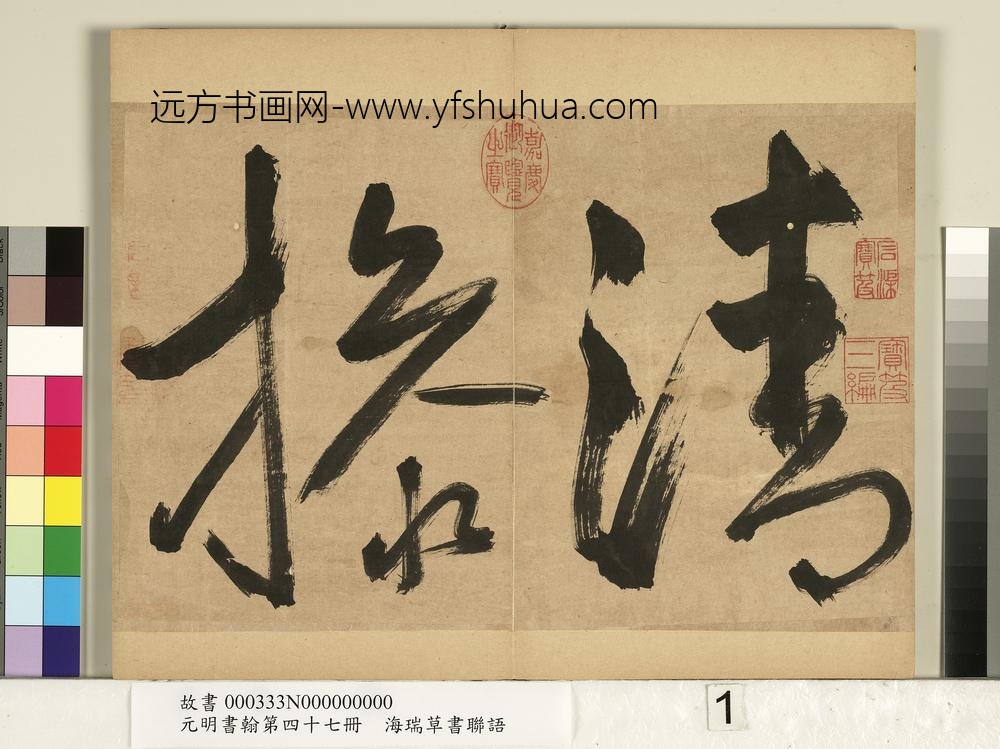 远方书画网-www.yfshuhua.com
清
操
嘉慶御覽之寶
石渠寶笈
寶笈三編
故書 000333N000000000
元明書翰第四十七冊 海瑞草書聯語
1